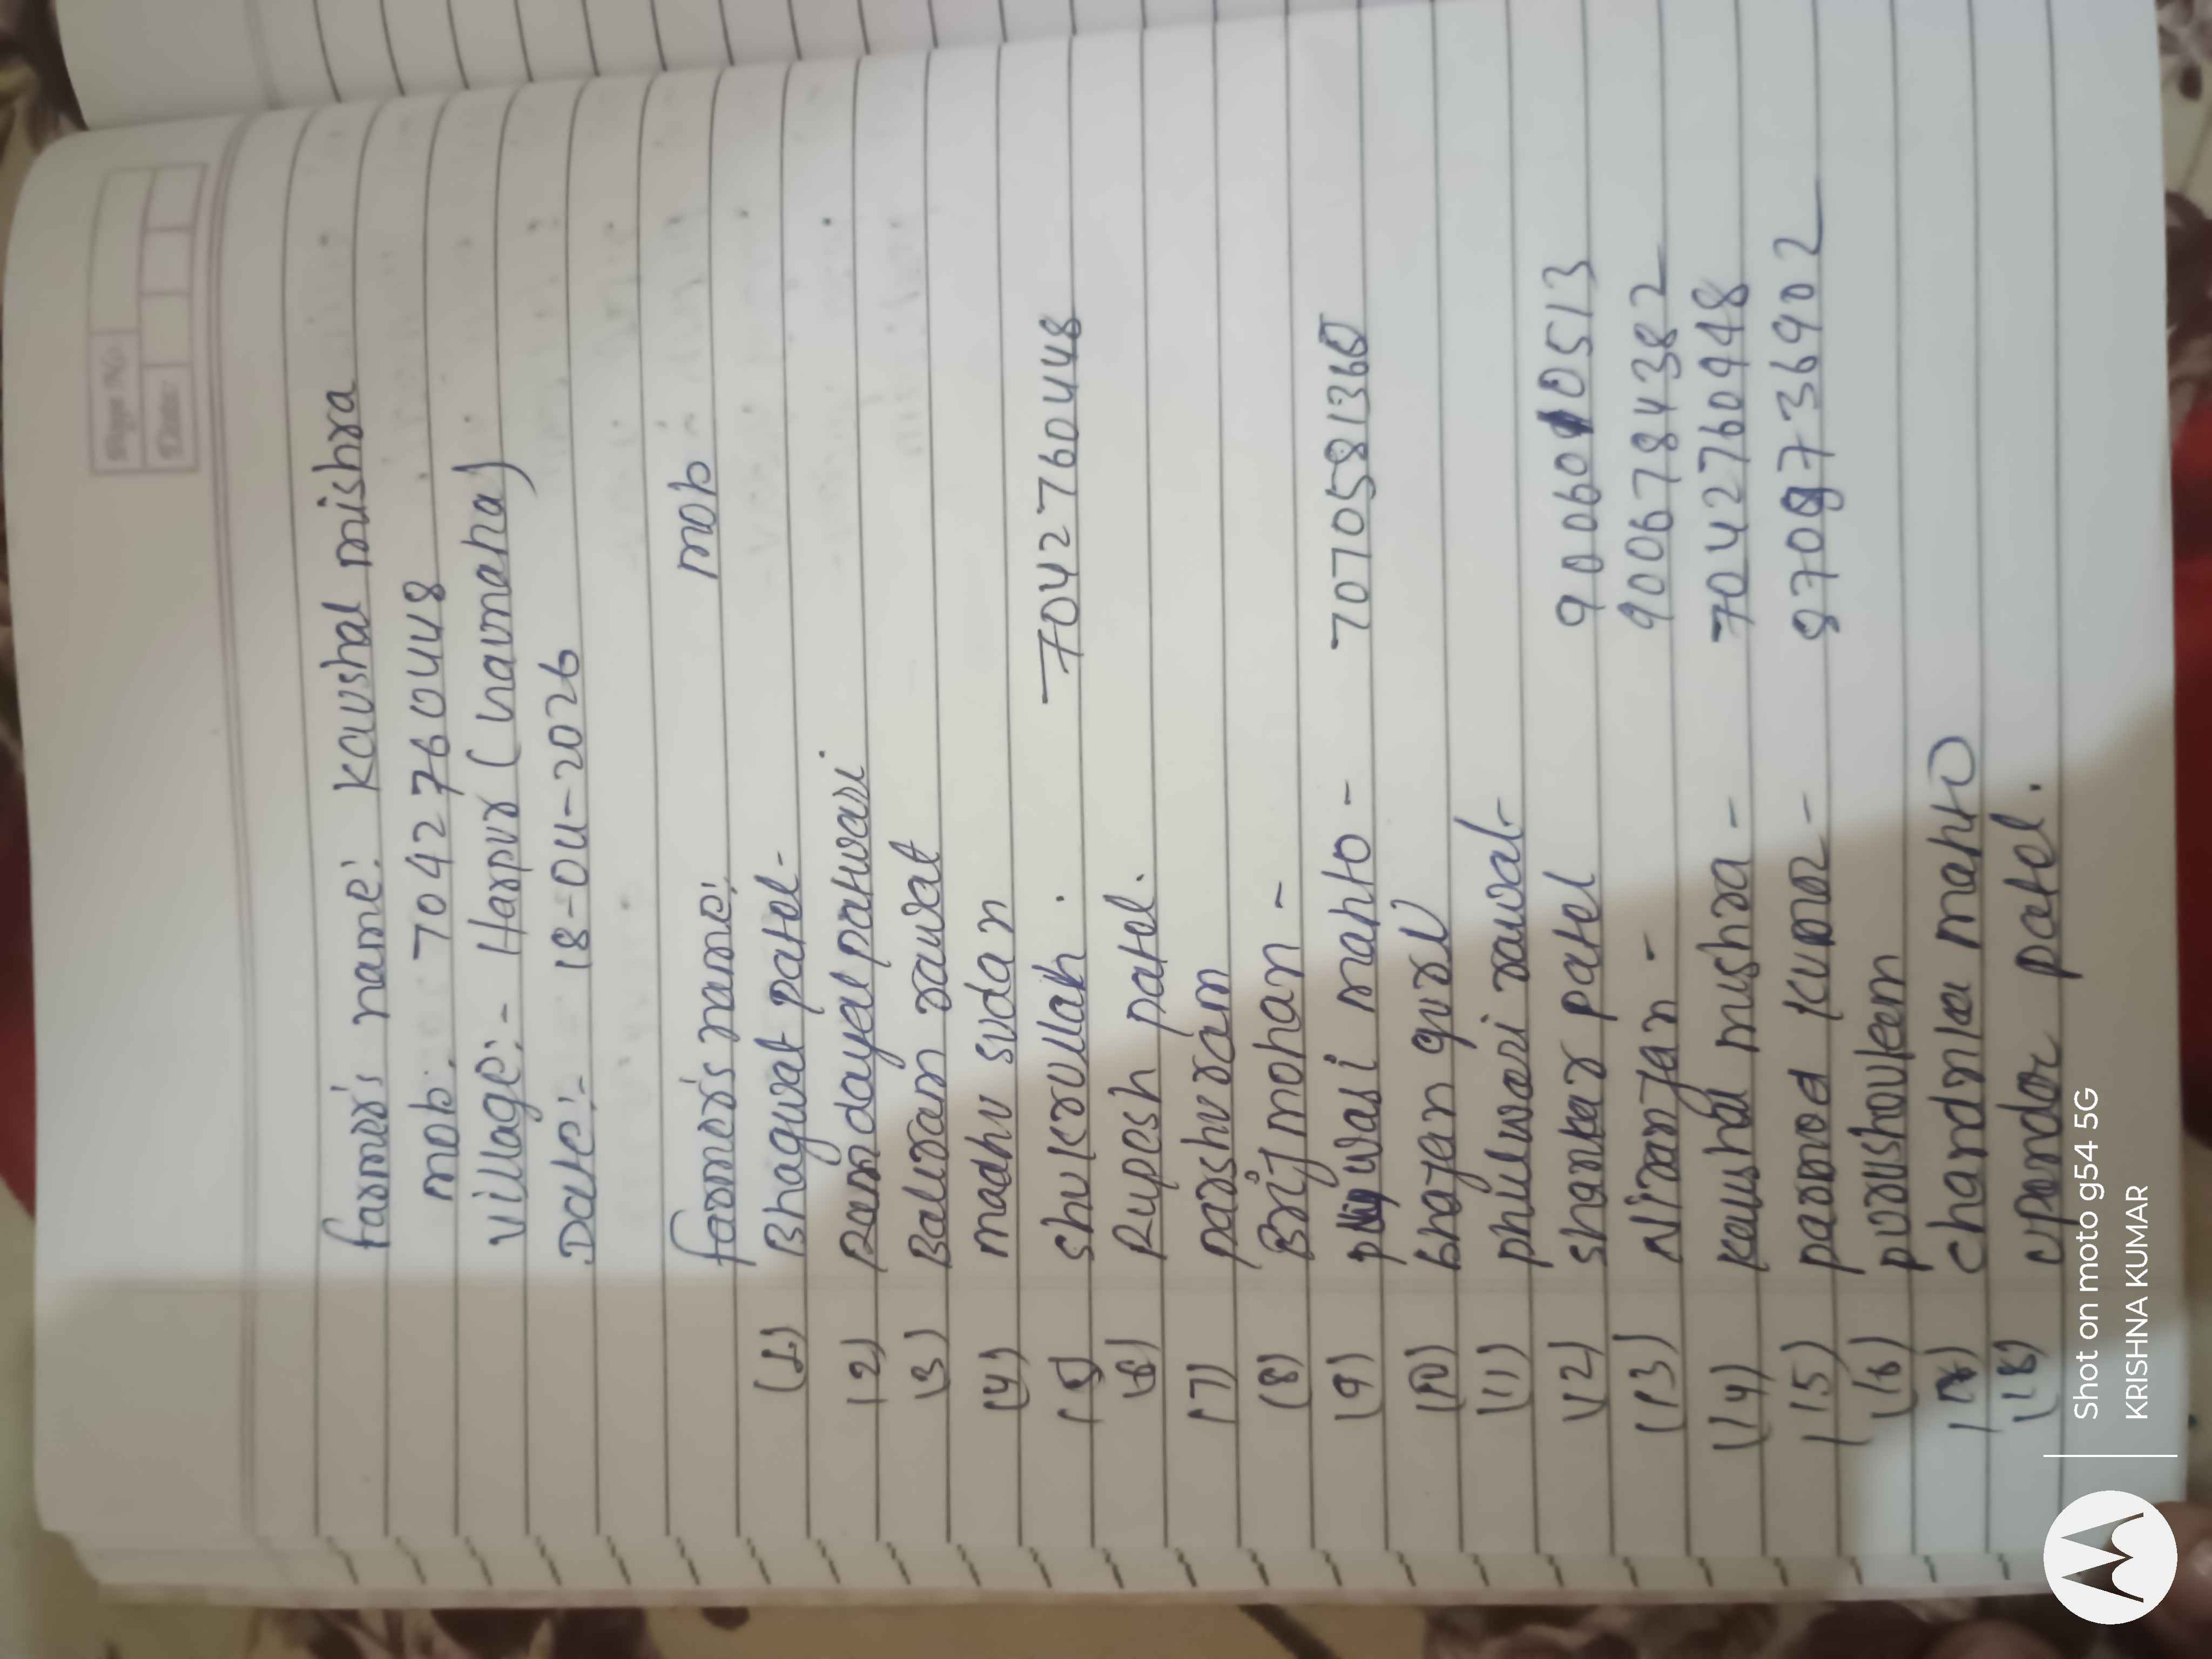 Page No.
Date:
farmer's name: Kaushal mishra
mob: 7042760448
village:- Harpur (naumaha)
Date:- 18-04-2026
farmer's name: mob
(1) Bhagwat patel-
(2) Ramdayal patwari
(3) Baliram rawat
(4) madhu sudan
(5) shukrullah. 7042760448
(6) Rupesh patel.
(7) parshuram
(8) Brij mohan -
(9) mahto - 7070581360
(10) bhajan guru
(11) phulwari rawat-
(12) shankar patel 9006010513
(13) Niranjan - 9006784382
(14) Kaushal mishra - 7042760948
(15) parmod Kumar - 8709736902
(16)
(17) mahto
(18) upendar patel.
Shot on moto g54 5G
KRISHNA KUMAR